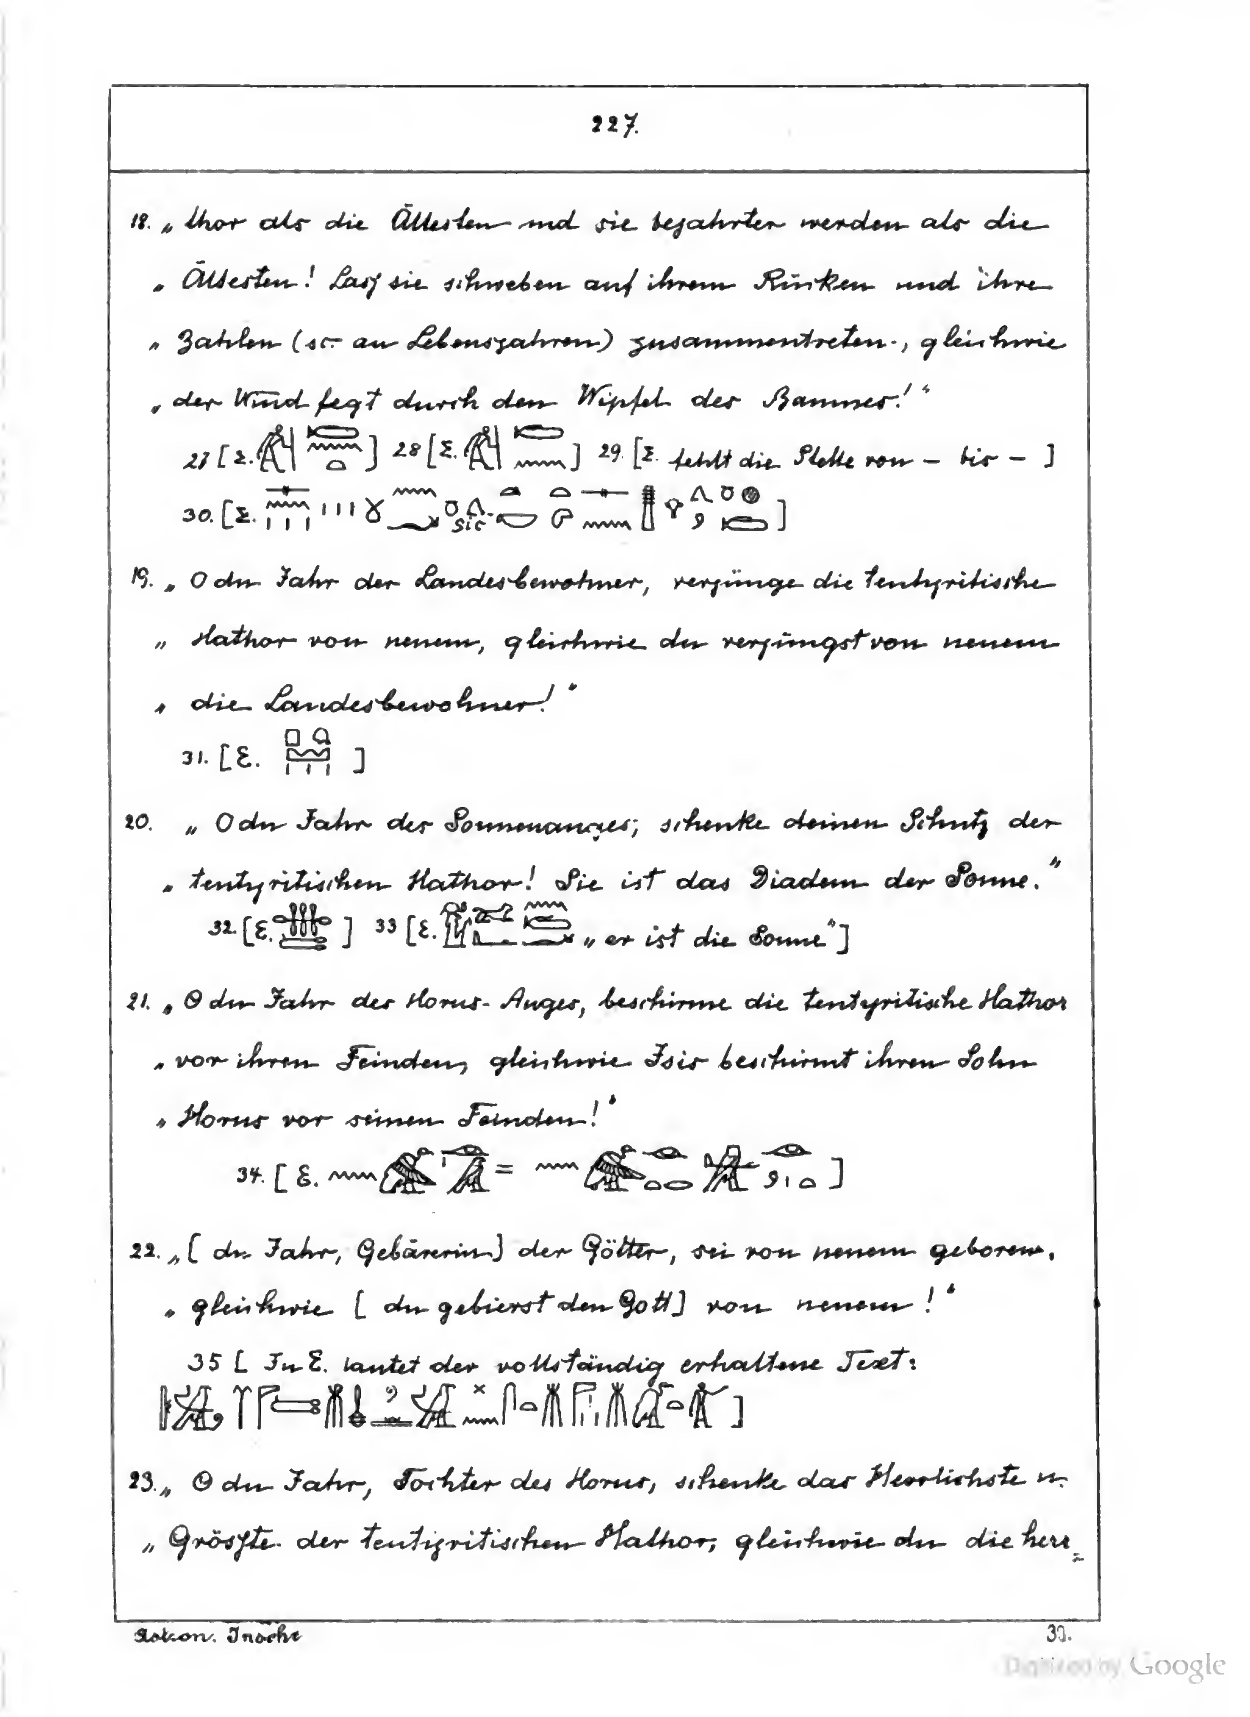 227.
18. „ thor als die Ältesten und sie bejahrter werden als die
„ Ältesten! Lass sie schweben auf ihrem Rücken und ihre
„ Zahlen (sc. an Lebensjahren) zusammentreten, gleichwie
„ der Wind fegt durch den Wipfel des Baumes!“
27 [E. ] 28 [E. ] 29. [E. fehlt die Stelle von – bis – ]
30. [E. sic ]
19. „ O du Jahr der Landesbewohner, verjünge die tentyritische
„ Hathor von neuem, gleichwie du verjüngst von neuem
„ die Landesbewohner!“
31. [E. ]
20. „ O du Jahr des Sonnenauges, schenke deinen Schutz der
„ tentyritischen Hathor! Sie ist das Diadem der Sonne.“
32. [E. ] 33 [E. „ er ist die Sonne“]
21. „ O du Jahr des Horus-Auges, beschirme die tentyritische Hathor
„ vor ihren Feinden, gleichwie Isis beschirmt ihren Sohn
„ Horus vor seinen Feinden!“
34. [ E. = ]
22. „ [ du Jahr, Gebärerin] der Götter, sei von neuem geboren,
„ gleichwie [ du gebierst den Gott] von neuem!“
35 [ In E. lautet der vollständig erhaltene Text:
]
23. „ O du Jahr, Tochter des Horus, schenke das Herrlichste u.
„ Grösste der tentyritischen Hathor, gleichwie du die herr=
Astron. Inschr.
Digitized by Google